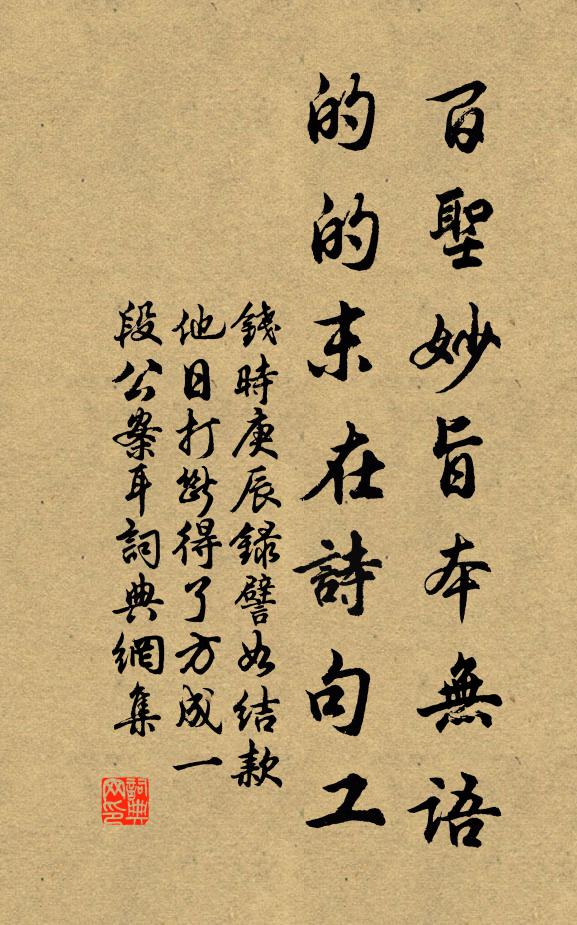 百聖妙旨本無語
的的末在詩句工
錢時庚辰錄譬如結款
他日打斷得了方成一
段公案耳詞典網集
詞典网印